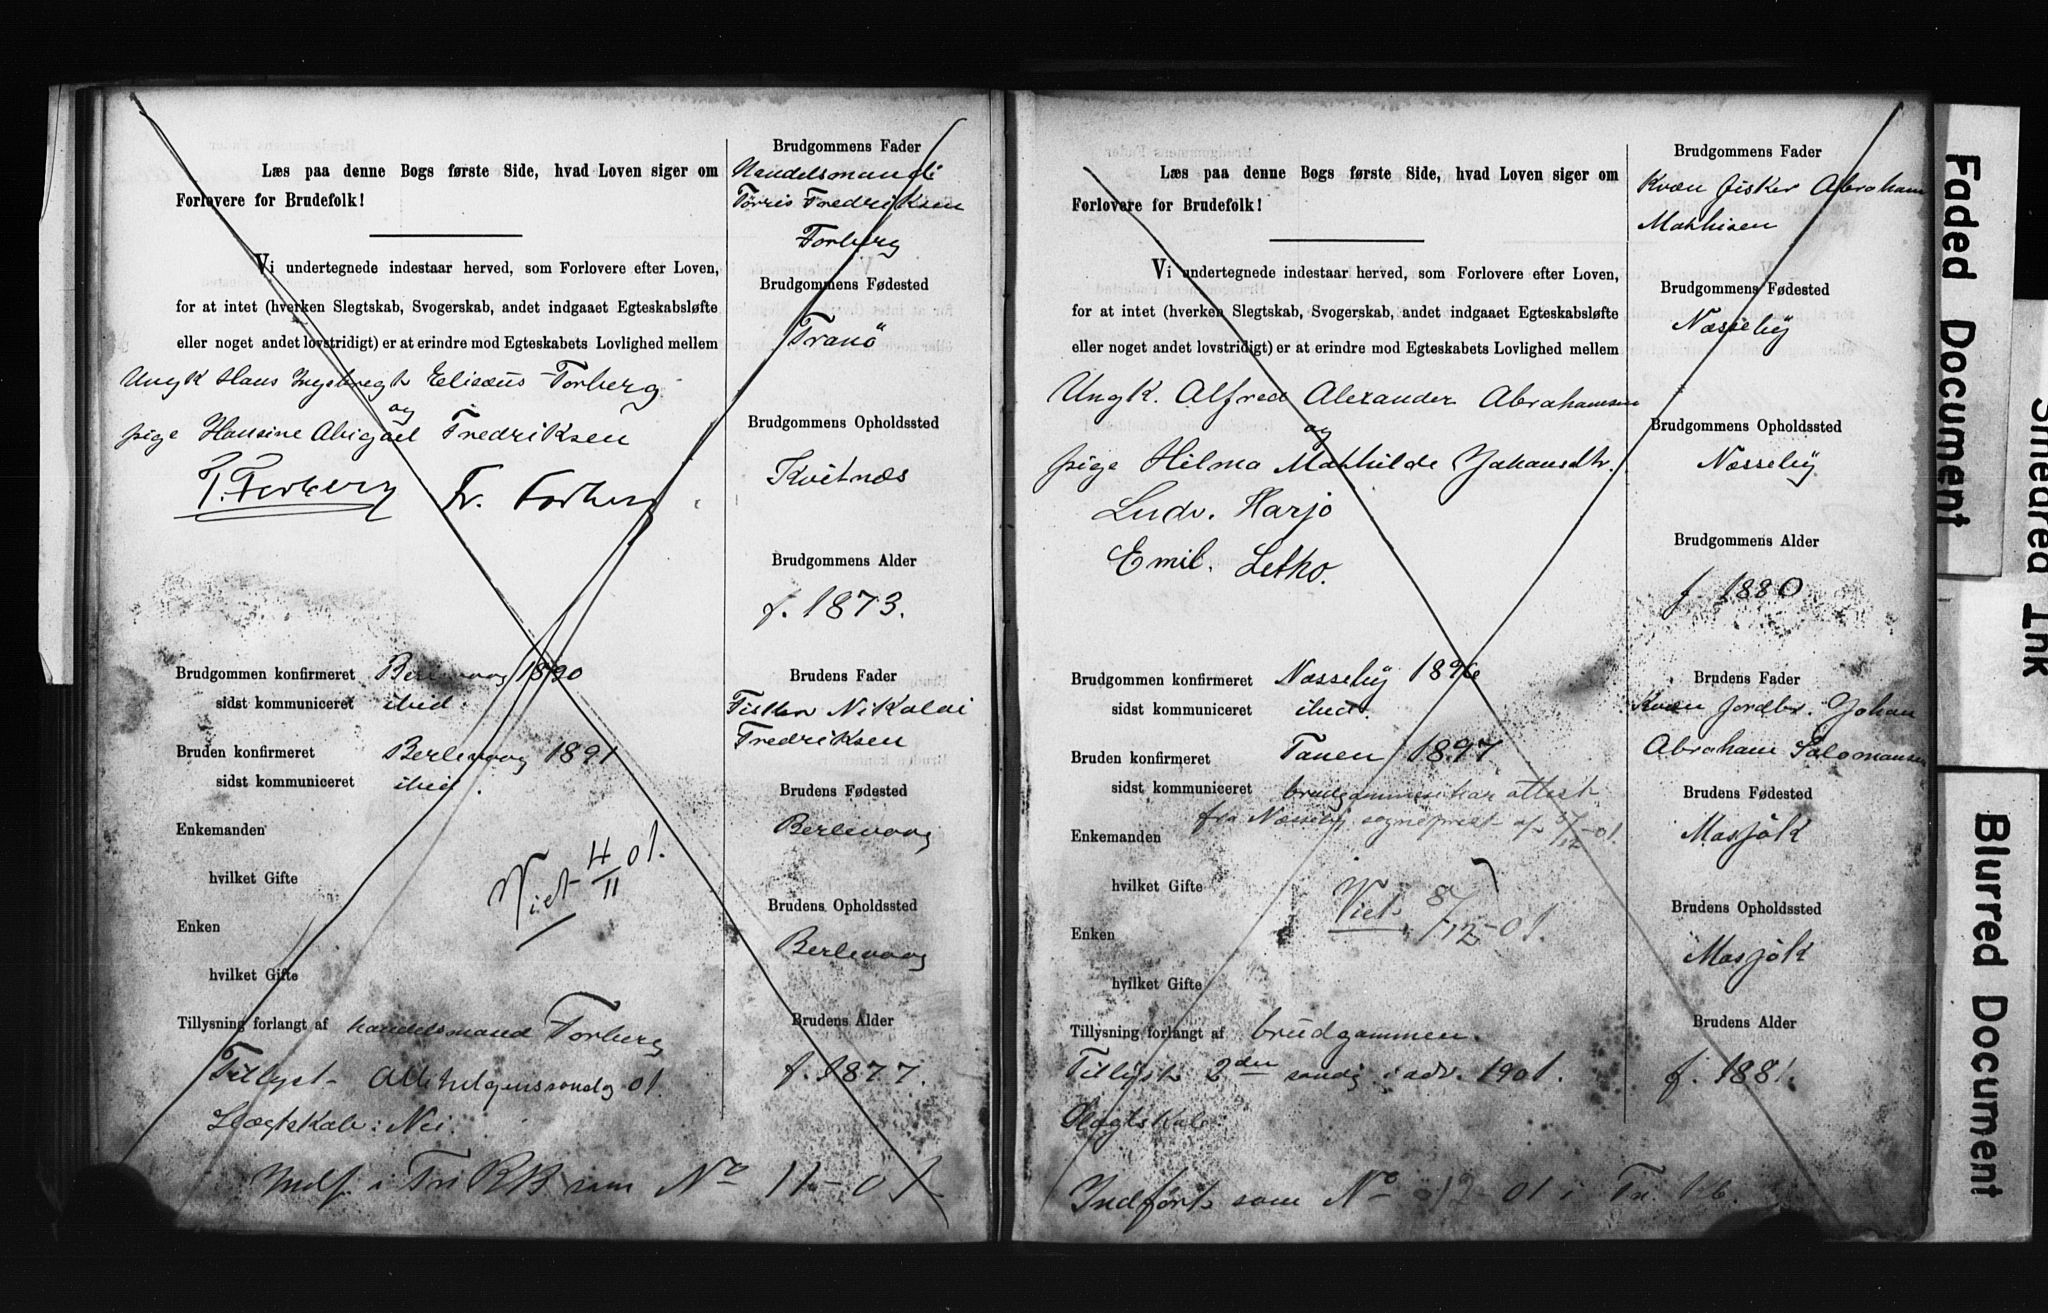 Læs paa denne Bogs første Side, hvad Loven siger om
Forlovere for Brudefolk!
Vi undertegnede indestaar herved, som Forlovere efter Loven,
for at intet (hverken Slegtskab, Svogerskab, andet indgaaet Egteskabsløfte
eller noget andet lovstridigt) er at erindre mod Egteskabets Lovlighed mellem
Ungk Hans Ingebregt Elisæus Torberg
og
pige Hansine Abigael Fredriksen
T. Torberg Fr. Torberg
Brudgommen konfirmeret Berlevaag 1890
sidst kommuniceret ibid.
Bruden konfirmeret Berlevaag 1891
sidst kommuniceret ibid.
Enkemanden
hvilket Gifte
Viet 4/11 01.
Enken
hvilket Gifte
Tillysning forlangt af handelsmand Torberg
Tillyst Allehelgenssondg 01.
Slægtskab: Nei.
Indf. i Tri KB som No 11-01
Brudgommens Fader
Handelsmand
Tørris Fredriksen
Torberg
Brudgommens Fødested
Tranö
Brudgommens Opholdssted
Kvitnæs
Brudgommens Alder
f. 1873.
Brudens Fader
Fisker Nikolai
Fredriksen
Brudens Fødested
Berlevaag
Brudens Opholdssted
Berlevaag
Brudens Alder
f. 1877.
Læs paa denne Bogs første Side, hvad Loven siger om
Forlovere for Brudefolk!
Vi undertegnede indestaar herved, som Forlovere efter Loven,
for at intet (hverken Slegtskab, Svogerskab, andet indgaaet Egteskabsløfte
eller noget andet lovstridigt) er at erindre mod Egteskabets Lovlighed mellem
Ungk. Alfred Alexander Abrahamsen
og
pige Hilma Mathilde Johansdtr.
Ludv. Harjo
Emil. Letho.
Brudgommen konfirmeret Næsseby 1896
sidst kommuniceret ibid.
Bruden konfirmeret Tanen 1897
sidst kommuniceret brudgommen har attest
fra Næsseby sognepræst af /12-01.
Enkemanden
hvilket Gifte
Viet 8/12-01.
Enken
hvilket Gifte
Tillysning forlangt af brudgommen.
Tillyst 2den søndg i adv. 1901.
Slægtskab
Indført som No 12-01 i Tn. Kb.
Brudgommens Fader
Kvæn fisker Abraham
Mathisen
Brudgommens Fødested
Næsseby
Brudgommens Opholdssted
Næsseby
Brudgommens Alder
f. 1880.
Brudens Fader
Kvæn Jordbr. Johan
Abraham Salomonsen
Brudens Fødested
Masjok
Brudens Opholdssted
Masjok
Brudens Alder
f. 1881.
Faded Document
Smeared Ink
Blurred Document